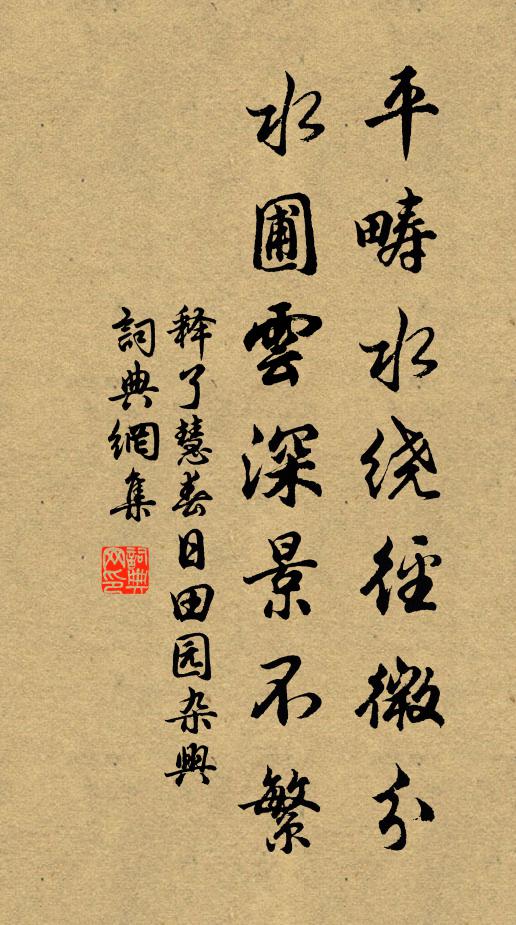 平疇水绕径微分
水圃雲深景不繁
释了慧春日田园杂興
詞典網集
詞典网印